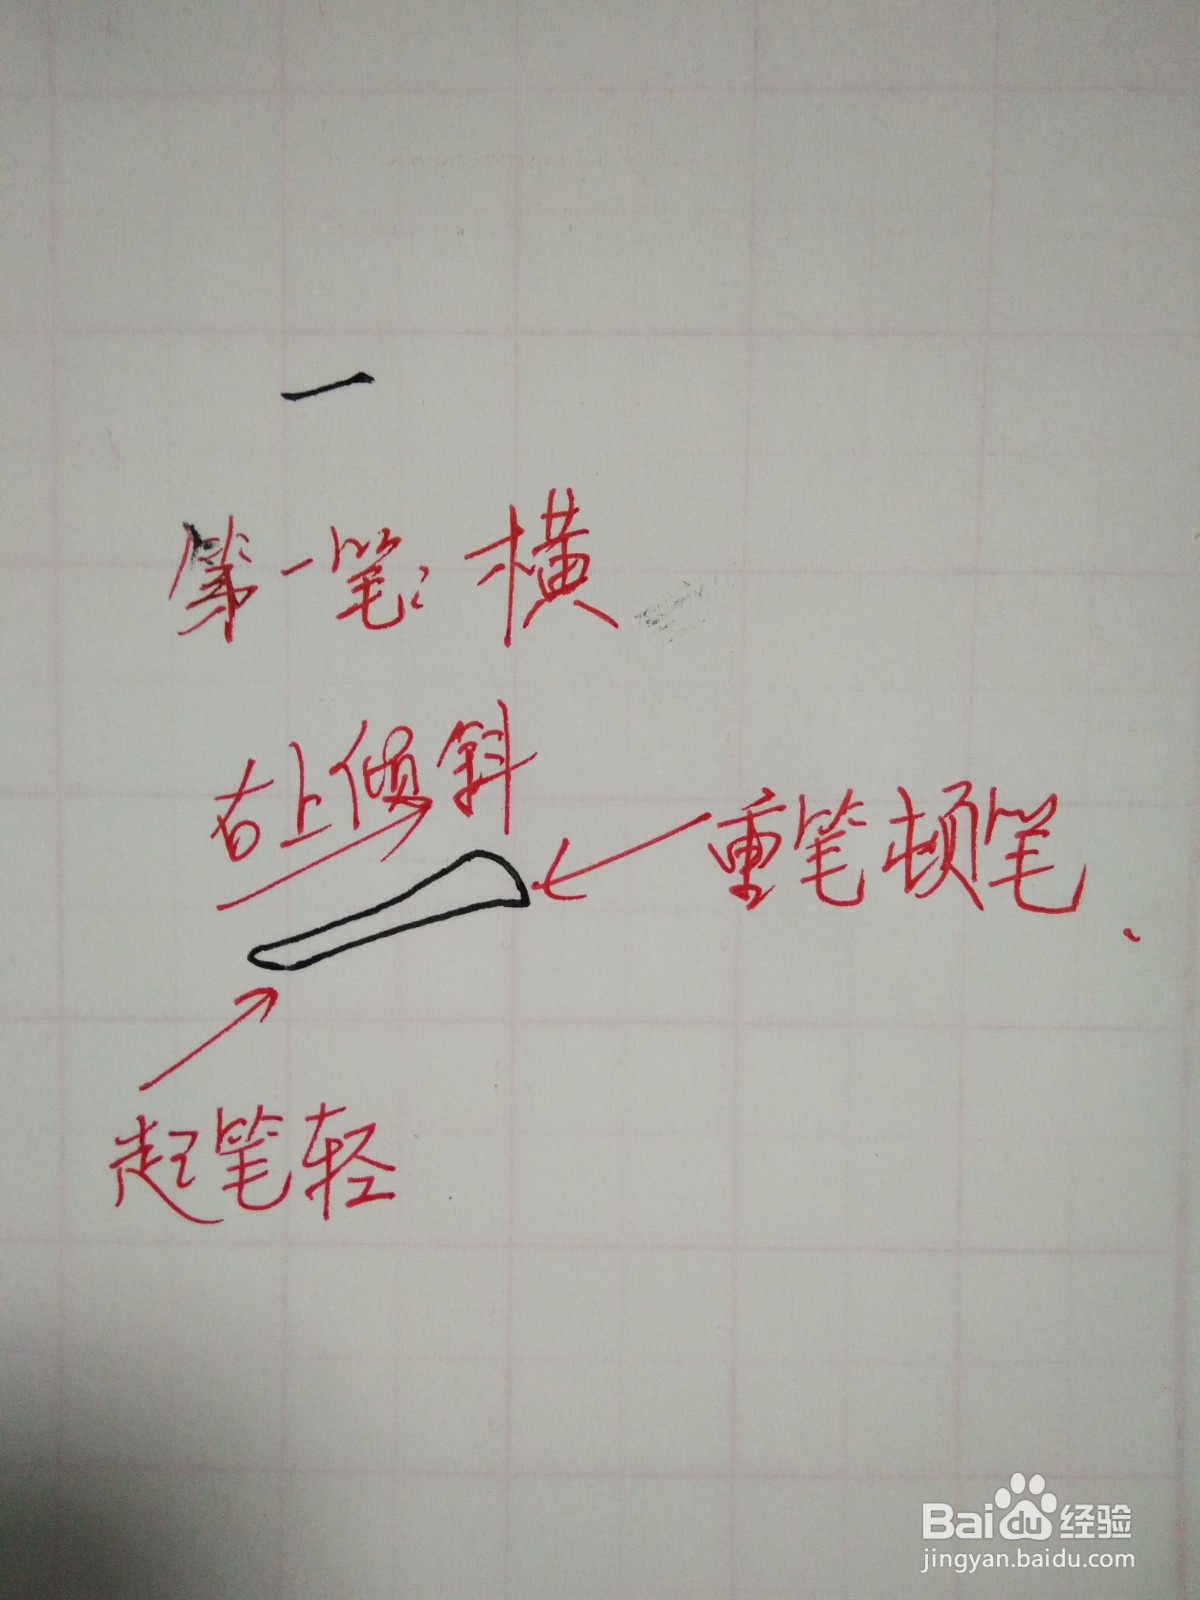 一
第一笔:横
右上倾斜
重笔顿笔
起笔轻
Baidu经验
jingyan.baidu.com